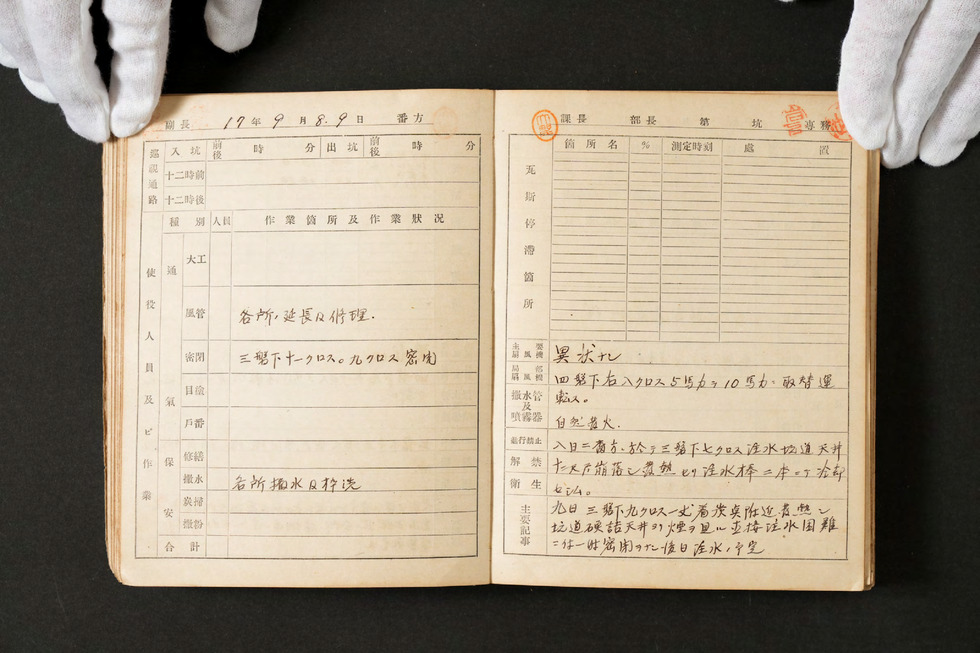 副長 17年9月8.9日 番方
巡視通路 入坑 前後 時 分 出坑 前後 時 分
十二時前
十二時後
使役人員及ビ作業
種別 人員 作業箇所及作業状况
通氣保安
大工
風管 各所、延長及修理.
密閉 三盤下十一クロス。九クロス密閉
目塗
戸番
修繕
撒水 各所撒水及枠洗
炭掃
撒粉
合計
課長 部長 第 坑 専務
瓦斯停滯箇所
箇所名 % 測定時刻 處置
主要扇風機 異状ナシ
局部扇風機 四盤下右八クロス5馬力ヲ10馬力、取替運
撒水管及噴霧器 転ス。
自然發火.
義行禁止
解禁
衛生
八日二番方、於テ三盤下七クロス注水坑道天井
崩落シ發熱 注水 二本 冷却
セシム。
主要記事
九日三盤下九クロス 附近發熱シ
坑道硬詰天井ヨリ煙ヲ見 直接注水困難
密閉ヲナシ後日注水、予定